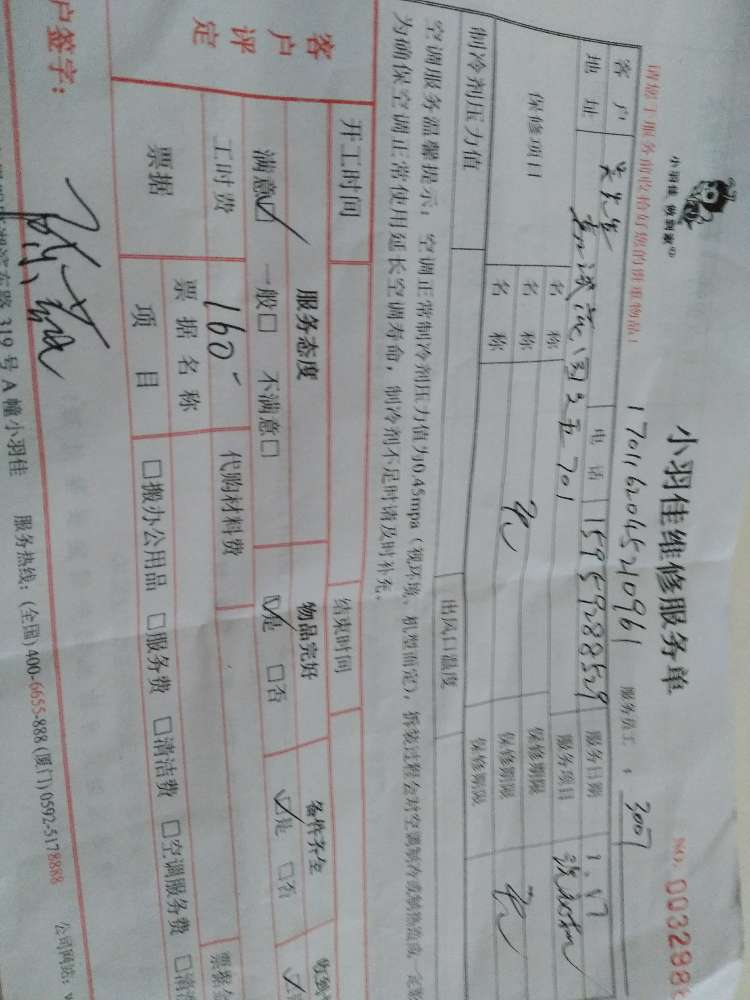 小羽佳 做到家
小羽佳维修服务单
NO. 003288
17011620452 10961
服务员工：3007
请您于服务前收拾好您的贵重物品！
客户 吴先生 电话 15959288529 服务日期 1.17
地址 701 服务项目
保修项目 名称 保修期限
名称 无 保修期限 无
名称 保修期限
制冷剂压力值 出风口温度
空调服务温馨提示：空调正常制冷剂压力值为0.45mpa（视环境、机型而定），拆装过程会对空调制冷或制热造成一定
为确保空调正常使用延长空调寿命，制冷剂不足时请及时补充。
开工时间 结束时间
客户评定 服务态度 物品完好 备件齐全
满意☑ 一般□ 不满意□ ☑是 □否 ☑是 □否
工时费 160 代购材料费
票据 票据名称 票据
项目 □搬办公用品 □服务费 □清洁费 □空调服务费
户签字：
319号A幢小羽佳 服务热线：(全国)400-6655-888 (厦门)0592-5178888 公司网站：